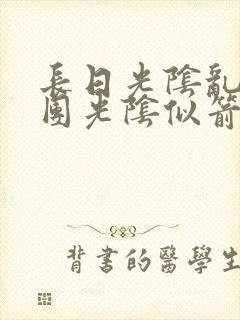 長日光陰亂
團光陰似箭
背書的醫學生